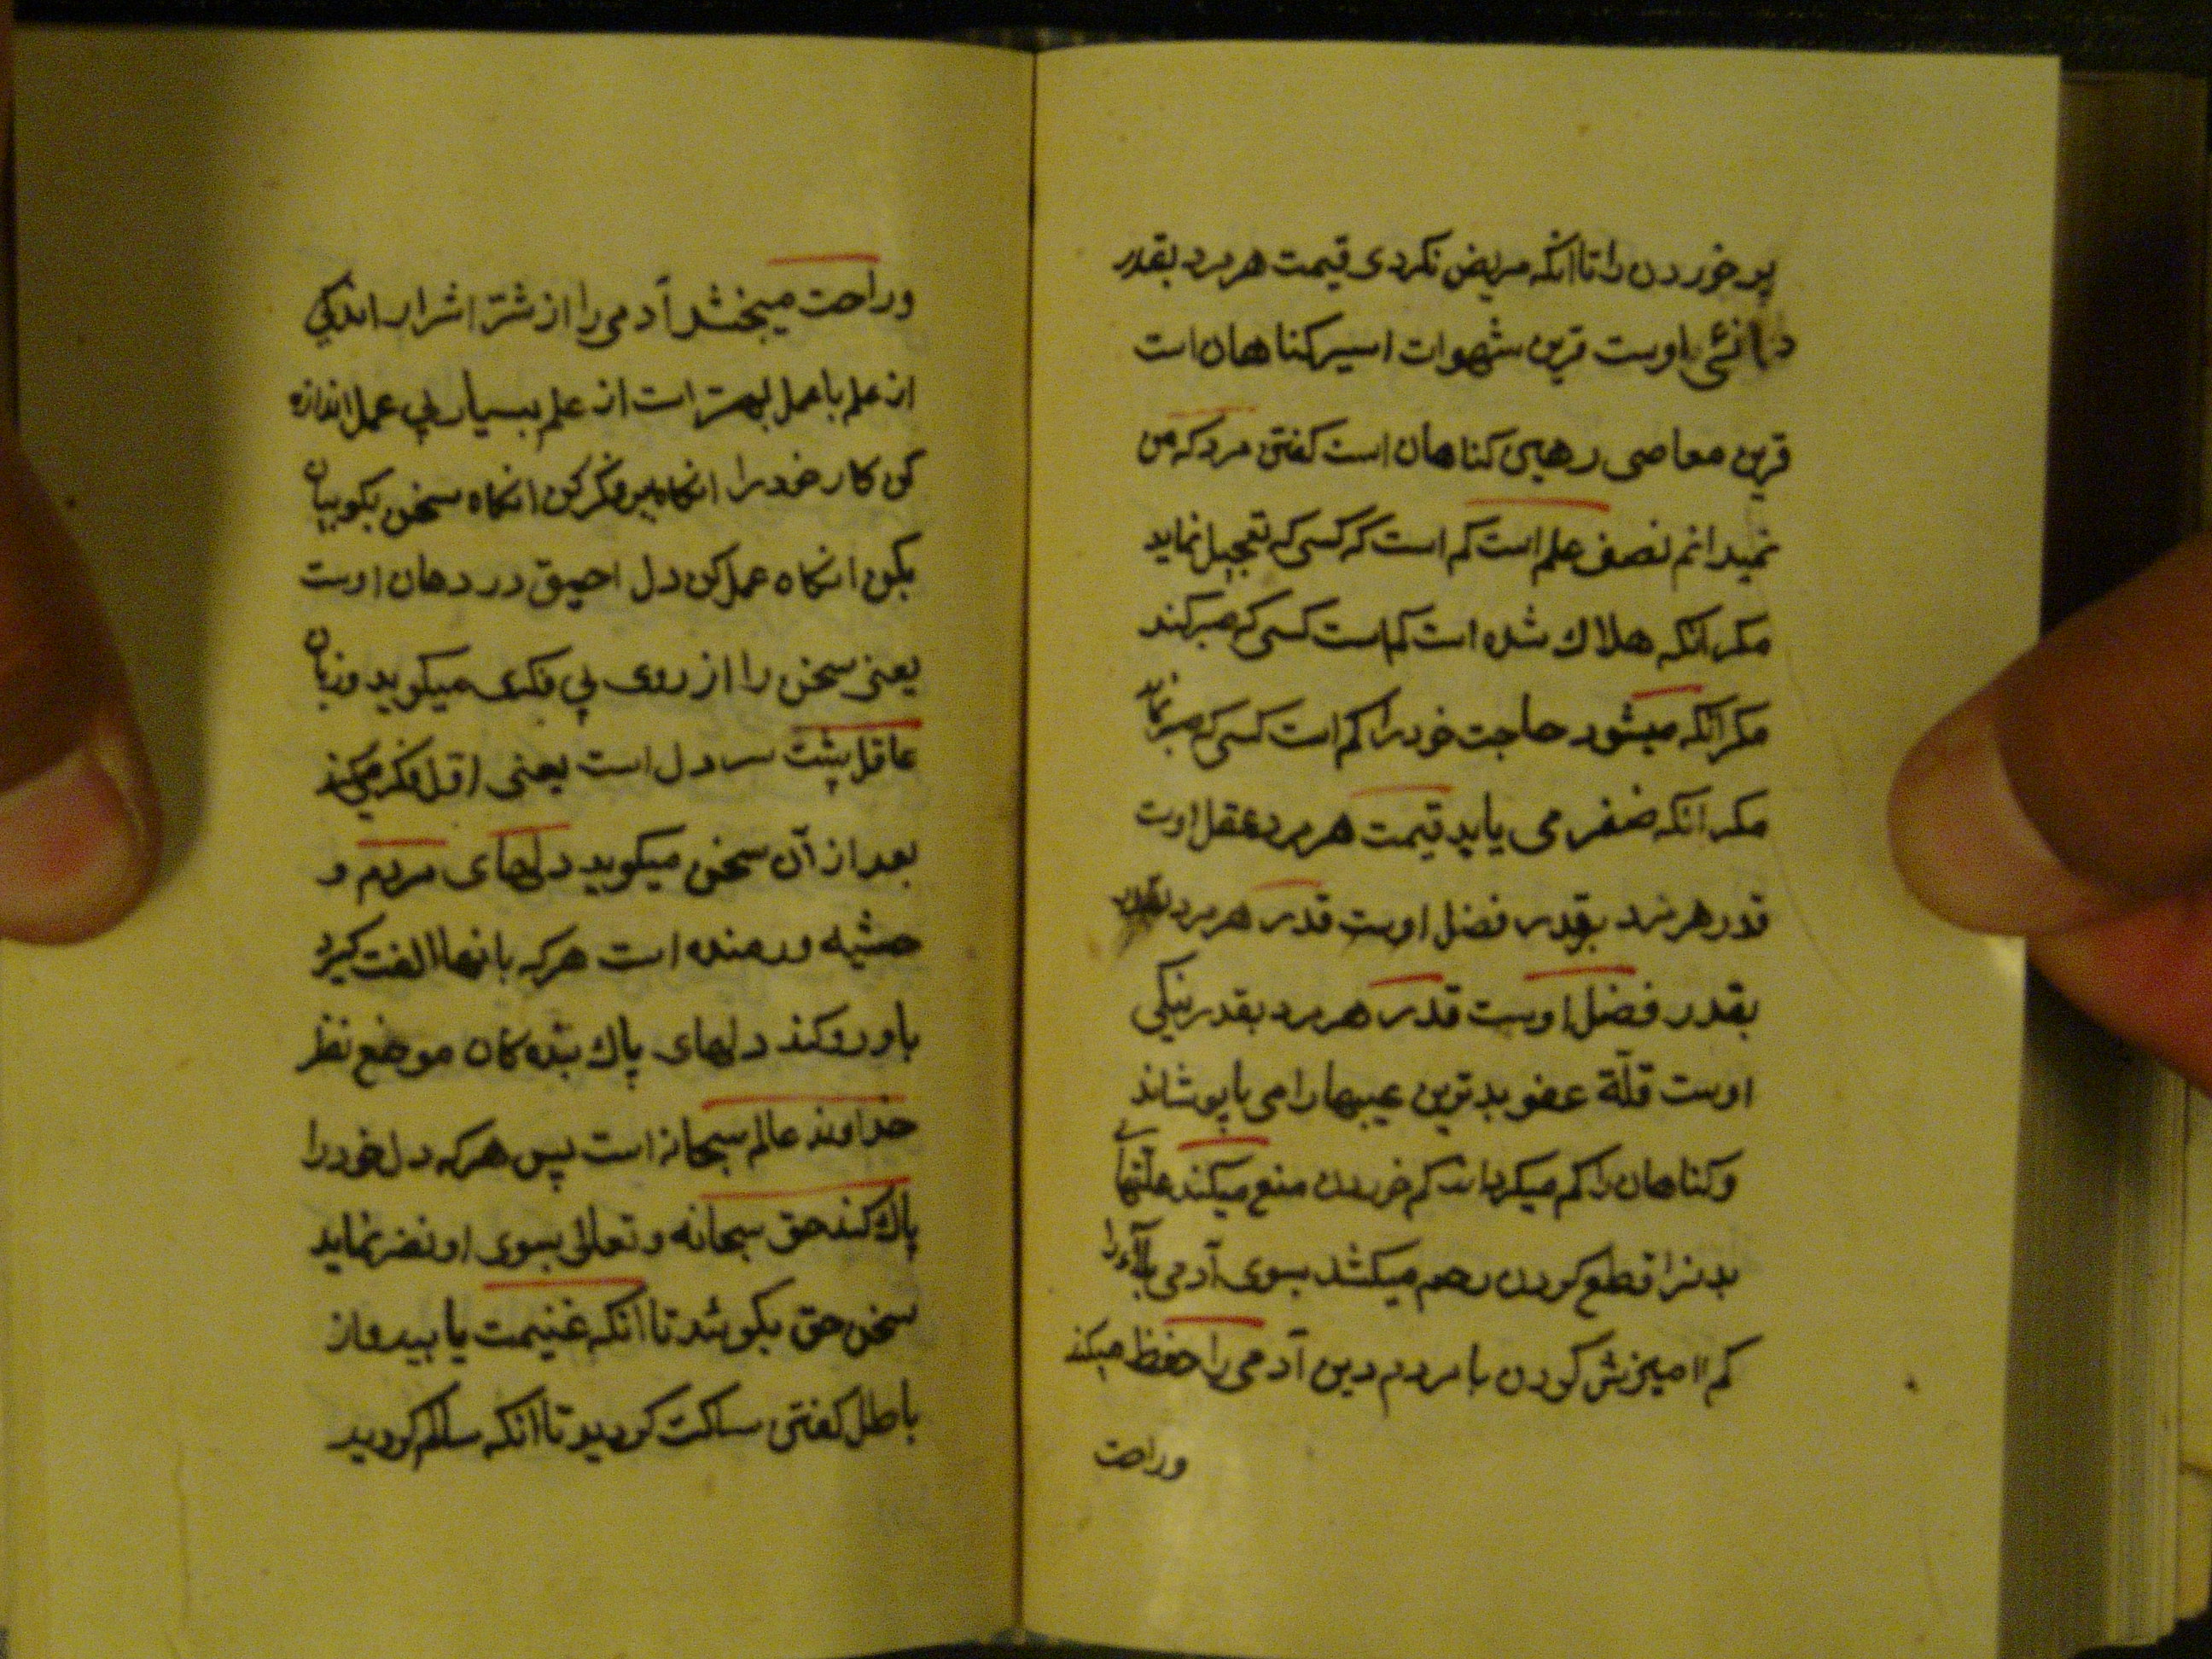 پر خوردن را تا آنکه مریض نکردی قیمت هر مرد بقدر
دانئی اوست قرین شهوات اسیر کناهان است
قرین معاصی رهین کناهان است کفتن مرد که من
نمیدانم نصف علم است کم است که کسی که تعجیل نماید
مکر آنکه هلاک شده است کم است کسی که صبر کند
مکر آنکه میشود حاجت خود را کم است کسی که صبر نماید
مکر آنکه ضفر می یابد قیمت هر مرد عقل اوست
قدر هر مرد بقدر فضل اوست قدر هر مرد بقدر
بقدر فضل اوست قدر هر مرد بقدر نیکی
اوست قلّة عفو بدترین عیبها را می باپوشاند
و کناهان را کم میکرداند کم خوردن منع میکند علّتهای
بدنرا قطع کردن رحم میکشد بسوی آدمی بلآء را
کم اامیزش کردن با مردم دین آدمی را حفظ میکند
وراحت
وراحت میبخشد آدمی را از شرّ اشرار اندکی
از علم با عمل بهتر است از علم بسیار بی عمل اندازه
کن کار خود را انکاه ببر فکر کن انکاه سخن بکو بیان
بکن انکاه عمل کن دل احمق در دهان اوست
یعنی سخن را از روی بی فکری میکوید و زبان
عاقل پشت سر دل است یعنی اوّل فکر میکند
بعد از آن سخن میکوید دلهای مردم و
حشیه و رمنده است هر که بانها الفت کیرد
باو رو کند دلهای پاک بنده کان موضع نظر
خداوند عالم سبحانه است پس هر که دل خود را
پاک کند حق سبحانه و تعالی بسوی او نضر نماید
سخن حق بکوئید تا انکه غنیمت یابید و از
باطل کفتن ساکت کردید تا انکه سالم کردید